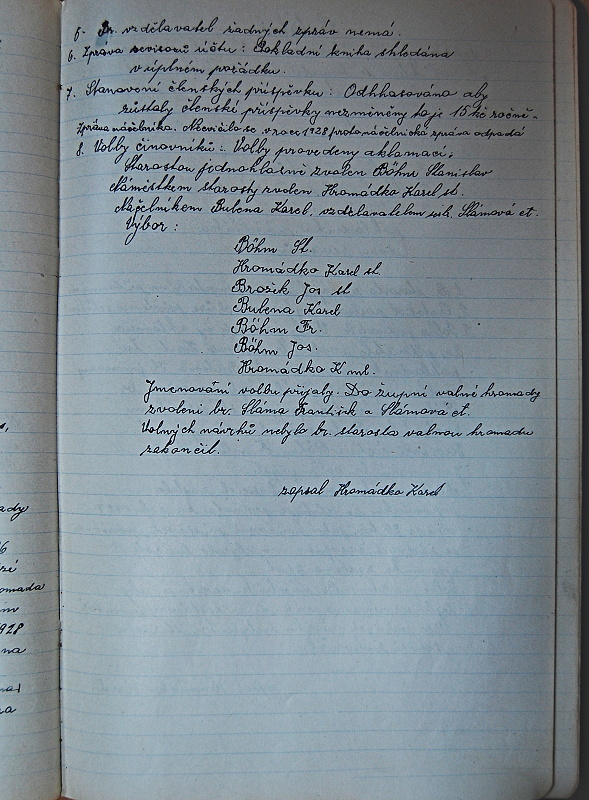 5. Br. vzdělavatel žadných zpráv nemá.
6. Zpráva revisorů účtu: Pokladní kniha shledána
v úplném pořádku.
7. Stanovení členských příspěvku: Odhlasována aby
zůstaly členské příspěvky nezměněny to je 15 kč ročně-
Zpráva náčelníka. Necvičilo se v roce 1928 proto náčelnická zpráva odpadá
8. Volby činovníků: Volby provedeny aklamací:
Starostou jednohlasně zvolen Böhm Stanislav
Náměstkem starosty zvolen Hromádko Karel st.
Náčelníkem Bulena Karel. vzdělavatelem ses. Slámová et.
Výbor:
Böhm St.
Hromádko Karel st.
Brožik Jos st
Bulena Karel
Böhm Fr.
Böhm Jos.
Hromádko K ml.
Jmenování volbu přijaly. Do župní valné hromady
zvoleni br. Sláma František a Slámová et.
Volných návrhů nebylo br. starosta valnou hromadu
zakončil.
zapsal Hromádko Karel
ady
6
omada
1928
na